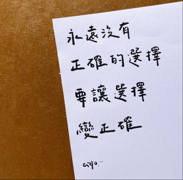 永遠沒有
正確的選擇
要讓選擇
變正確